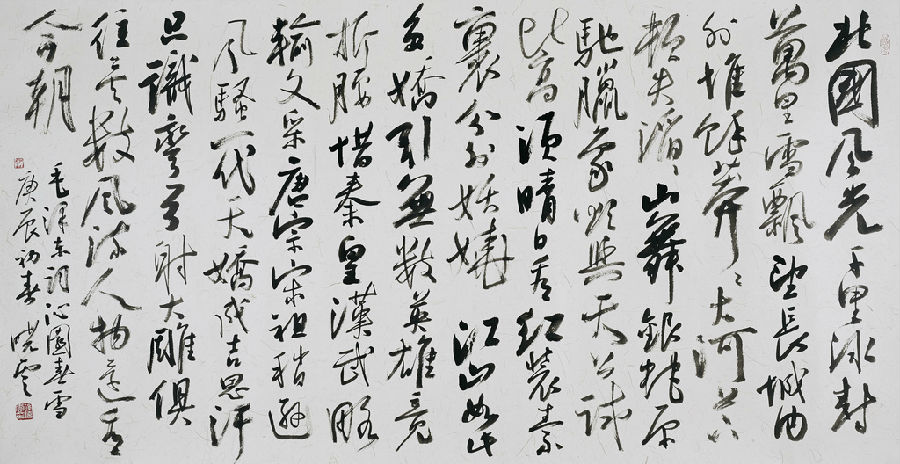 北國風光千里冰封
萬里雪飄望長城内
外惟餘莽〻大河上下
頓失滔〻山舞銀蛇原
馳臘象欲與天公試
比高須晴日看紅裝素
裹分外妖嬈江山如此
多嬌引無數英雄競
折腰惜秦皇漢武略
輸文采唐宗宋祖稍遜
風騷一代天嬌成吉思汗
只識彎弓射大雕俱
往矣數風流人物還看
今朝
毛澤東詞沁園春雪
庚辰初春曉雲